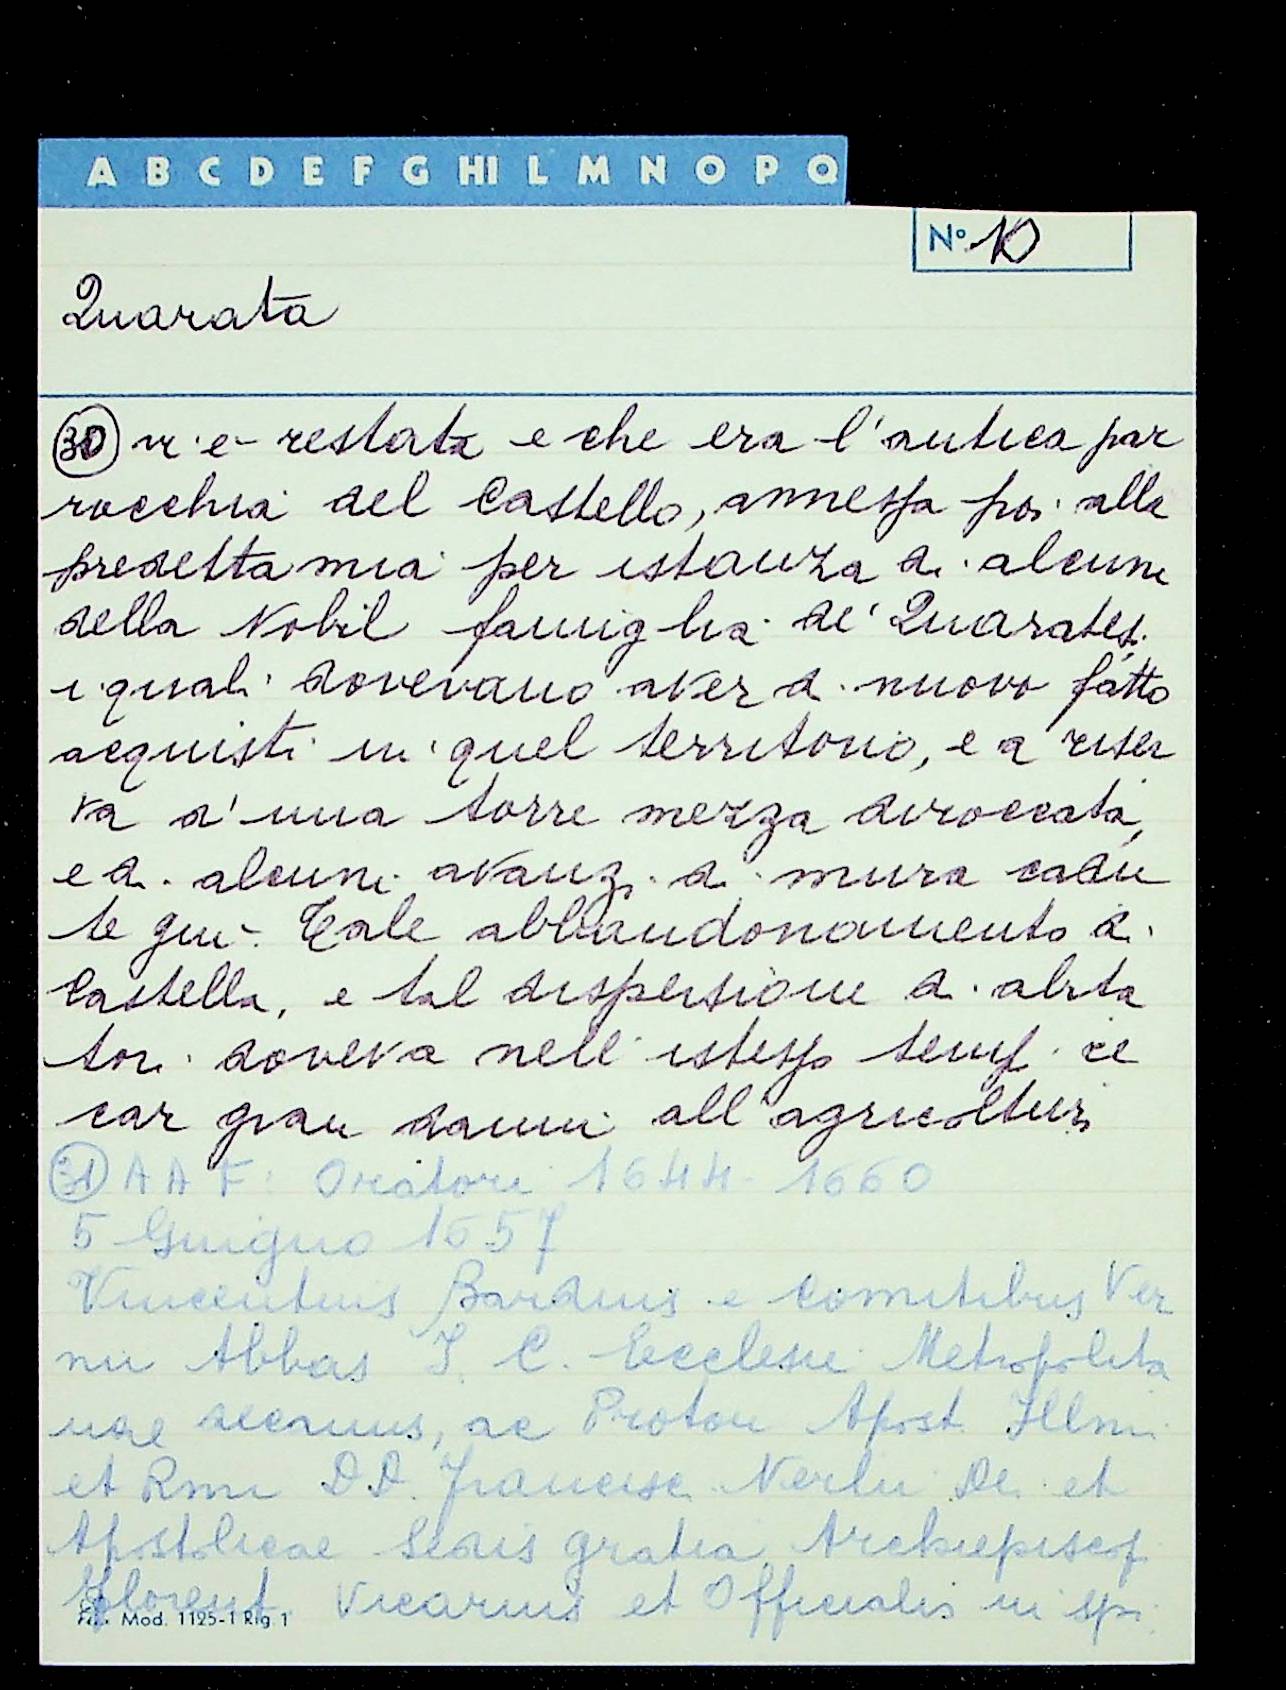 A B C D E F G HI L M N O P Q
N° 10
Quarata
30 vi è restata e che era l'antica par
rocchia del Castello, annessa poi alla
predetta mia per istanza di alcuni
della Nobil famiglia de' Quaratesi
i quali dovevano aver di nuovo fatto
acquisti in quel territorio, e a riser
va d'una torre mezza diroccata,
e di alcuni avanzi di mura cadu
te giù. Tale abbandonamento di
Castella, e tal dispersione di abita
tori doveva nell'istesso tempo re
car gran danni all'agricoltura
31 AAF: Oratori 1644-1660
5 Giugno 1657
Vincentius Bardius e Comitibus Ver
nii Abbas J. C. Ecclesie Metropolita
nae decanus, ac Proton Apost. Illmi
et Rmi D.D. Francisci Nerlii Dei et
Apostolicae Sedis gratia Archiepiscopi
Florent. Vicarius et Officialis in spi
Mod. 1125-1 Rig. 1